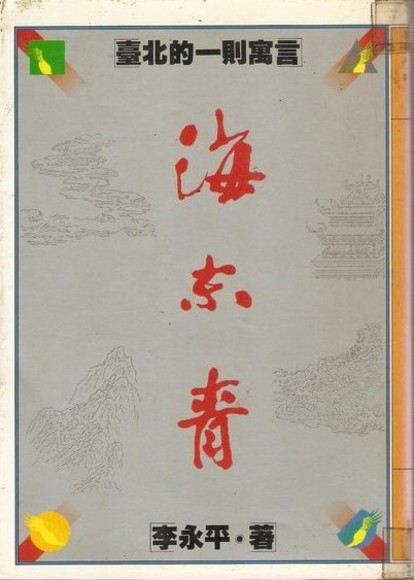 臺北的一則寓言
海东青
李永平·著